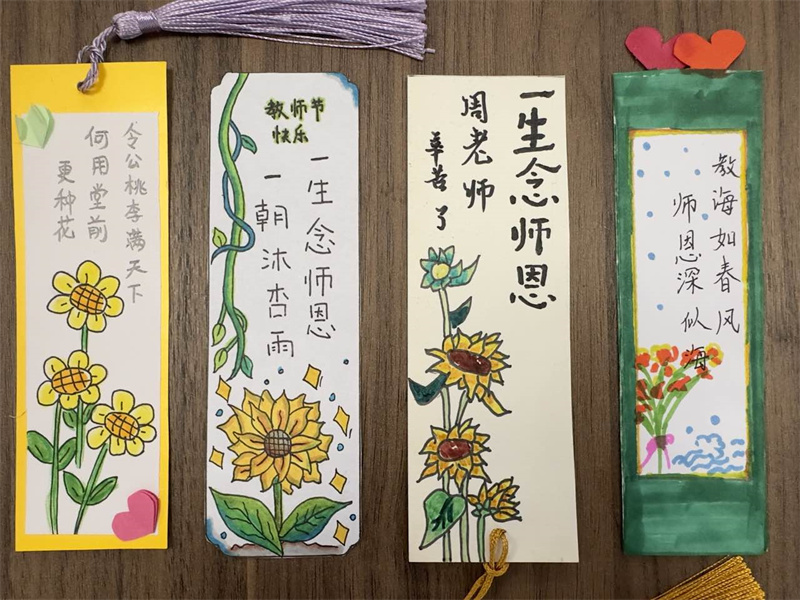 令公桃李满天下
何用堂前
更种花
教师节
快乐
一生念师恩
一朝沐杏雨
一生念师恩
周老师
辛苦了
教海如春风
师恩深似海